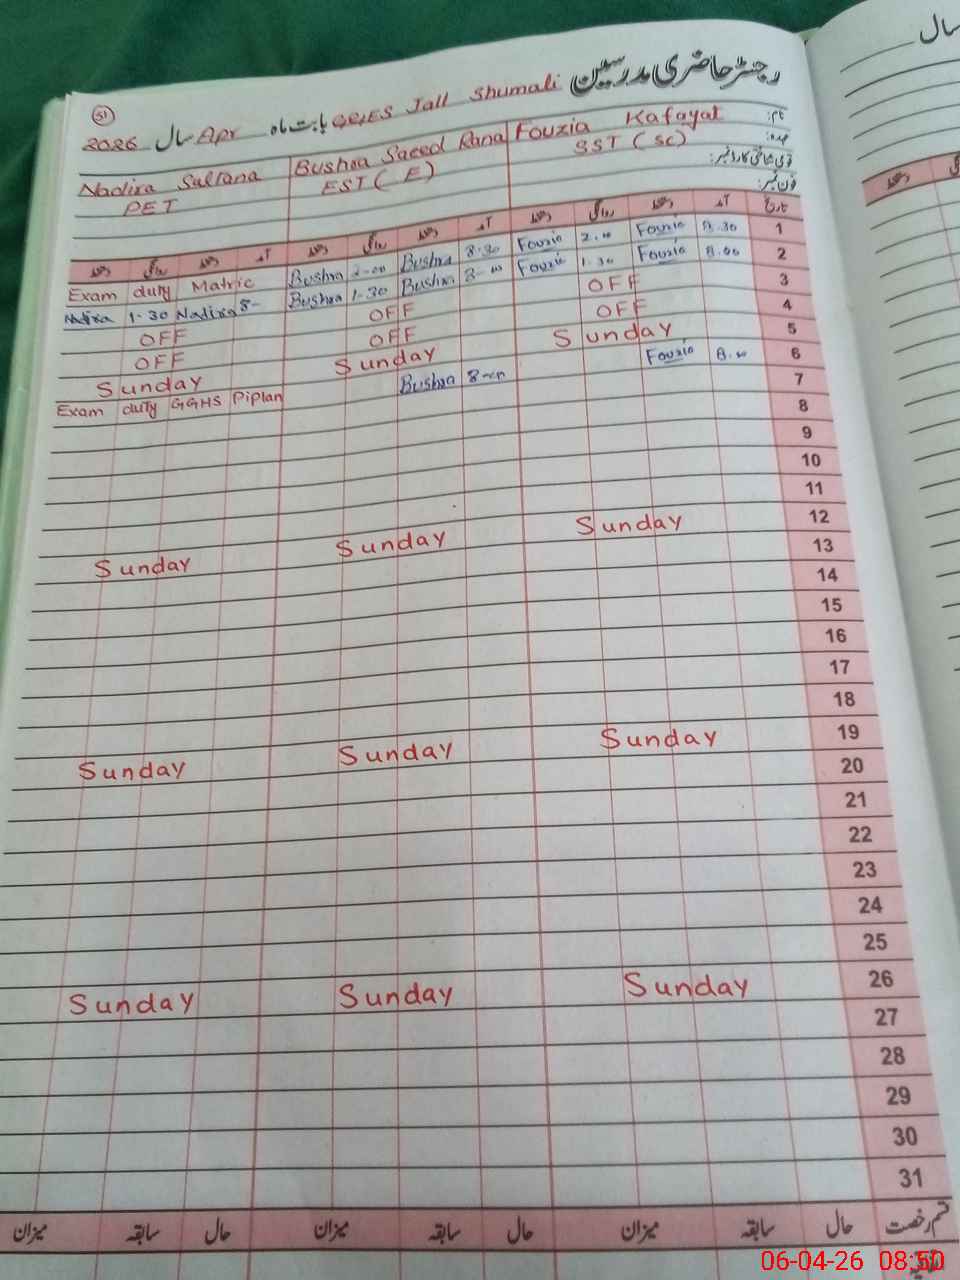 رجسٹر حاضری مدرسین
51
GGES Jall Shumali بابت ماہ Apr سال 2026
سال
نام:
Fouzia Kafayat
Bushra Saeed Rana
Nadira Saltana
عہدہ:
SST (SC)
EST (E)
PET
قومی شناختی کارڈ نمبر:
فون نمبر:
تاریخ آمد دستخط روانگی دستخط آمد دستخط روانگی دستخط آمد دستخط روانگی دستخط
1 8.30 Fouzia 2.00 Fouzia 8.30 Bushra 2-00 Bushra Exam duty Matric
2 8.00 Fouzia 1.30 Fouzia 8-00 Bushra 1-30 Bushra 8- Nadira 1-30 Nadira
3 OFF OFF OFF
4 OFF OFF OFF
5 Sunday Sunday Sunday
6 8.00 Fouzia 8-00 Bushra Exam duty GGHS Piplan
7
8
9
10
11
12 Sunday Sunday Sunday
13
14
15
16
17
18
19 Sunday Sunday Sunday
20
21
22
23
24
25
26 Sunday Sunday Sunday
27
28
29
30
31
قسم رخصت حال سابقہ میزان حال سابقہ میزان حال سابقہ میزان
06-04-26 08:50